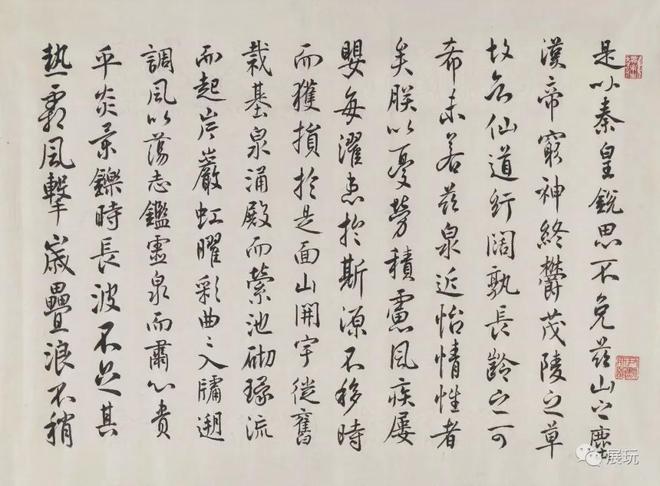 是以秦皇銳思不免茲山之塵
漢帝窮神終鬱茂陵之草
故知仙道紆闊孰長齡之可
希未若茲泉近怡情性者
矣朕以憂勞積慮風疾屢
嬰每濯患於斯源不移時
而獲損於是面山開宇從舊
栽基泉涌殿而縈池砌環流
而起岸巖虹曜彩曲之入牖遡
調風以蕩志鑑靈泉而肅心貴
乎炎景鑠時長波不足其
熱霜風擊歲疊浪不稍
展玩